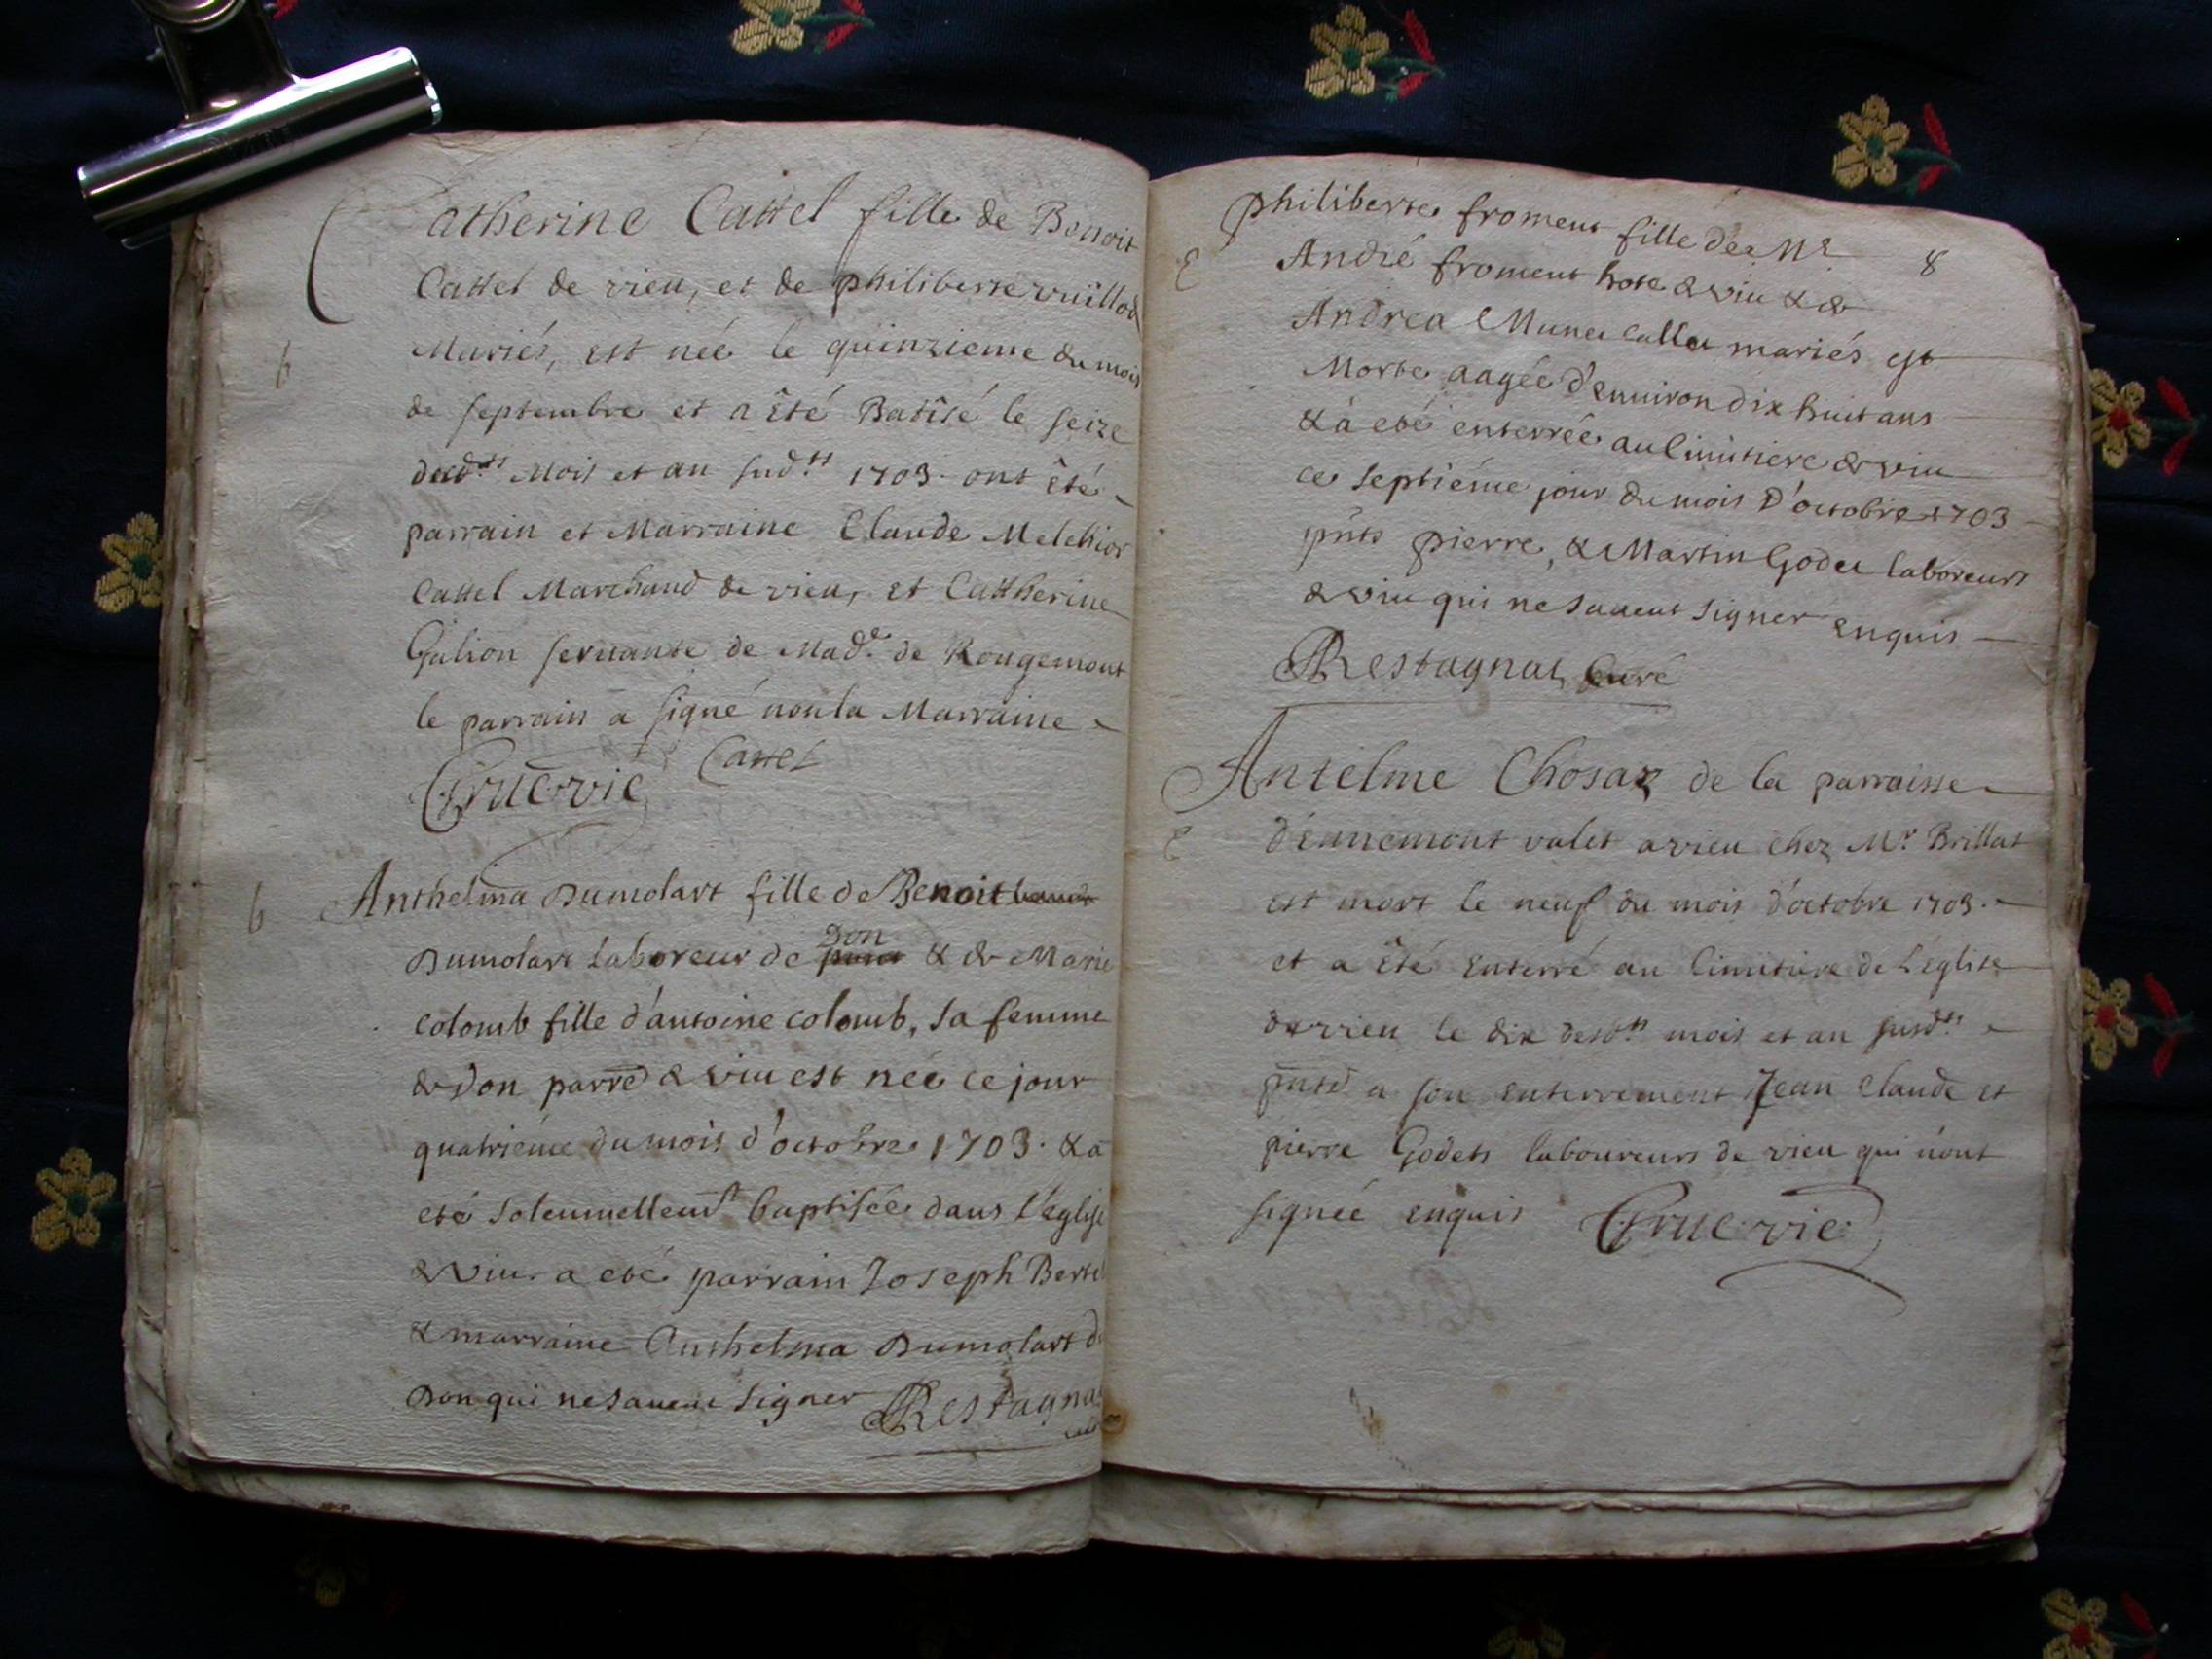 Catherine Cattel fille de Benoit
Cattel de vieu, et de philiberte vuillod
Mariés, est née le quinzieme du mois
b
de septembre et a êté Batisé le seize
dud.ts Mois et an sud.ts 1703. ont êté
parrain et Marraine Claude Melchior
Cattel Marchand de vieu, et Cattherine
Gulion servante de Mad.e de Rougemont
le parrain a signé non la Marraine
Cattel
Gruëvie
b Anthelma Dumolart fille de Benoit
Don
Dumolart Laboreur de & de Marie
colomb fille d'antoine colomb, sa femme
de Don parre de viu est née ce jour
quatriéme du mois d'octobre 1703. & a
eté solennellemt baptisée dans l'eglise
de Viu. a eté parrain Joseph Berte
& marraine Anthelma Dumolart de
Don qui ne savent signer Restagnat
philiberte froment fille de Mr
8
E André froment hote de viu & de
Andrea mariés est
Morte aagée d'environ dix huit ans
& à eté enterrée au Cimitiere de viu
ce septiéme jour du mois d'octobre 1703
pnts pierre, & Martin Godet laboreurs
de viu qui ne savent signer enquis
Restagnat, Curé
Antelme Chosaz de la parraisse
E d'ennemont valet a vieu chez Mr Brillat
est mort le neuf du mois d'octobre 1703.
et a êté enterré au Cimitiere de l'église
de vieu le dix desd.ts mois et an susd.ts
pnts a son enterrement Jean Claude et
pierre Godets laboureurs de vieu qui n'ont
signéé enquis Gruëvie